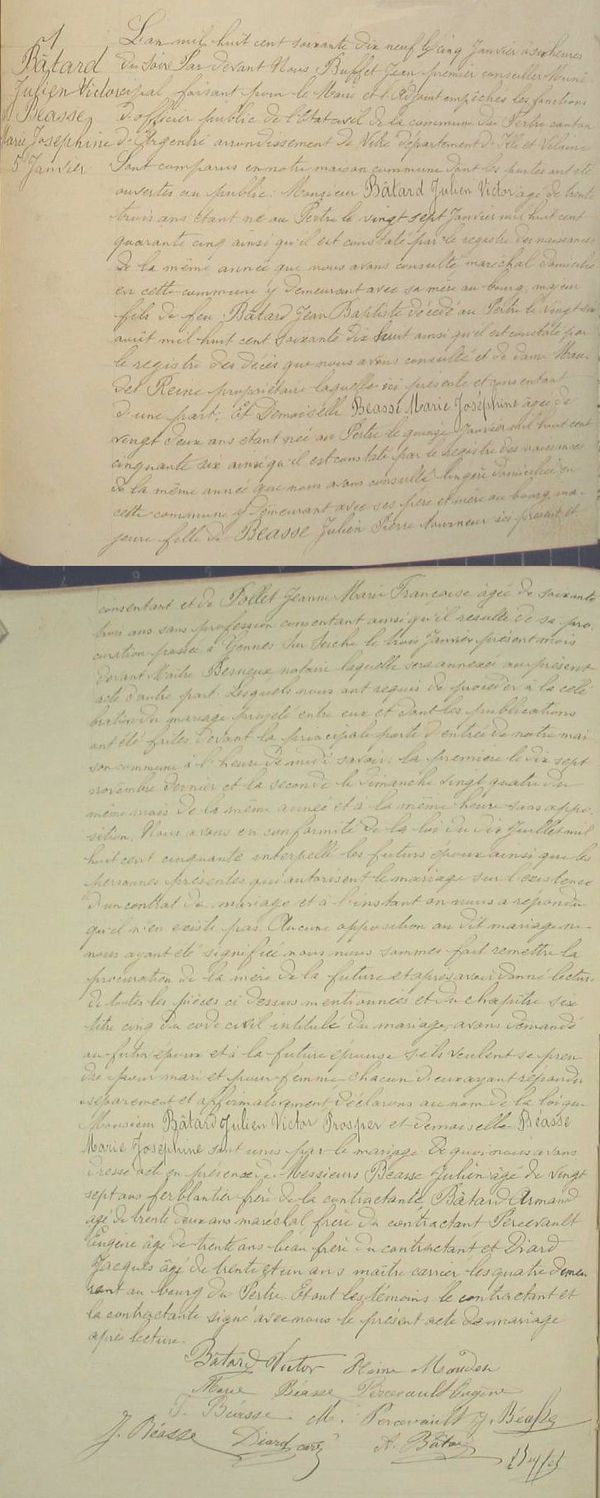 1
Bâtard
Julien Victor
et Béasse
Marie Joséphine
5 Janvier
L'an mil huit cent soixante dix neuf le cinq Janvier à six heures
du soir Par devant Nous Buffet Jean premier conseiller muni
cipal faisant pour le Maire et l'Adjoint empêchés les fonctions
d'officier public de l'Etat civil de la commune du Pertre canton
d'Argentré arrondissement de Vitré département d'Ille et Vilaine
Sont comparus en notre maison commune dont les portes ont été
ouvertes au public. Monsieur Bâtard Julien Victor âgé de trente
trois ans étant né au Pertre le vingt sept Janvier mil huit cent
quarante cinq ainsi qu'il est constaté par le registre des naissances
de la même année que nous avons consulté, maréchal domicilié
en cette commune y demeurant avec sa mère au bourg, majeur
fils de feu Bâtard Jean Baptiste décédé au Pertre le vingt
août mil huit cent soixante dix huit ainsi qu'il est constaté par
le registre des décès que nous avons consulté et de dame Mou
det Reine propriétaire laquelle ici présente et consentant
d'une part; Et Demoiselle Béasse Marie Joséphine âgée de
vingt deux ans étant née au Pertre le quinze Janvier mil huit cent
cinquante six ainsi qu'il est constaté par le registre des naissances
de la même année que nous avons consulté lingère domiciliée en
cette commune y demeurant avec ses père et mère au bourg ma
jeure fille de Béasse Julien Pierre tourneur ici présent et
consentant et de Pollet Jeanne Marie Françoise âgée de soixante
trois ans sans profession consentant ainsi qu'il résulte de sa pro
curation passée à Gennes sur Seiche le trois Janvier présent mois
devant Maître Besneux notaire laquelle sera annexée au présent
acte d'autre part. Lesquels nous ont requis de procéder à la célé
bration du mariage projeté entre eux et dont les publications
ont été faites devant la principale porte d'entrée de notre mai
son commune à l'heure de midi savoir: la première le dix sept
novembre dernier et la seconde le dimanche vingt quatre du
même mois de la même année et à la même heure sans oppo
sition. Nous avons en conformité de la loi du dix Juillet mil
huit cent cinquante interpellé les futurs époux ainsi que les
personnes présentes qui autorisent le mariage sur l'existence
d'un contrat de mariage et à l'instant on nous a répondu
qu'il n'en existe pas. Aucune opposition au dit mariage ne
nous ayant été signifiée nous nous sommes fait remettre la
procuration de la mère de la future et après avoir donné lecture
de toutes les pièces ci dessus mentionnées et du chapitre six
titre cinq du code civil intitulé du mariage, avons demandé
au futur époux et à la future épouse s'ils veulent se pren
dre pour mari et pour femme chacun d'eux ayant répondu
séparément et affirmativement déclarons au nom de la loi que
Monsieur Bâtard Julien Victor Prosper et demoiselle Béasse
Marie Joséphine sont unis par le mariage. De quoi nous avons
dressé acte en présence de Messieurs Béasse Julien âgé de vingt
sept ans ferblantier frère de la contractante Bâtard Armand
âgé de trente deux ans maréchal frère du contractant Percevault
Eugène âgé de trente ans beau frère du contractant et Diard
Jacques âgé de trente et un ans maître carrier les quatre demeu
rant au bourg du Pertre. Etant les témoins le contractant et
la contractante signé avec nous le présent acte de mariage
après lecture.
Bâtard Victor Reine Moudet
Marie Béasse Percevault Eugène
J. Béasse M. Percevault J. Béasse
J. Béasse Diard A. Bâtard Buffet